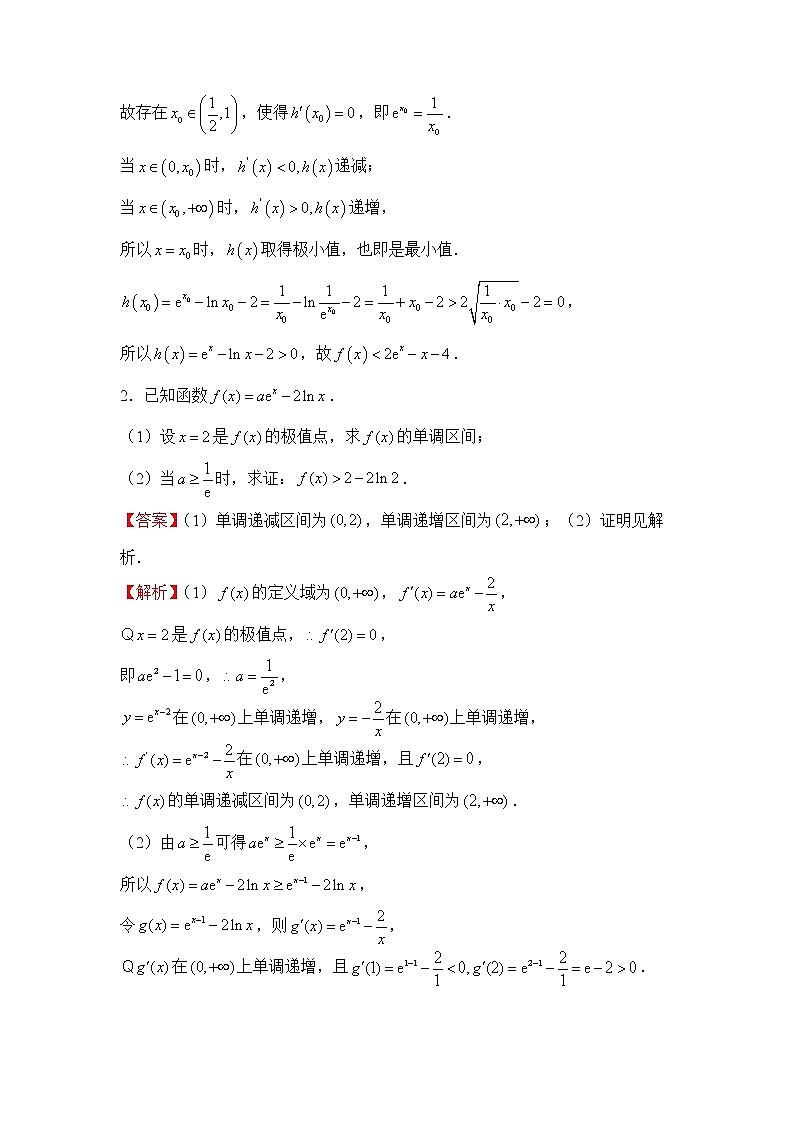 故存在 $x_0 \in \left(\frac{1}{2},1\right)$，使得 $h'(x_0)=0$，即 $\mathrm{e}^{x_0}=\frac{1}{x_0}$．
当 $x\in(0,x_0)$ 时，$h'(x)<0,h(x)$ 递减；
当 $x\in(x_0,+\infty)$ 时，$h'(x)>0,h(x)$ 递增，
所以 $x=x_0$ 时，$h(x)$ 取得极小值，也即是最小值．
$h(x_0)=\mathrm{e}^{x_0}-\ln x_0-2=\frac{1}{x_0}-\ln\frac{1}{\mathrm{e}^{x_0}}-2=\frac{1}{x_0}+x_0-2>2\sqrt{\frac{1}{x_0}\cdot x_0}-2=0$，
所以 $h(x)=\mathrm{e}^x-\ln x-2>0$，故 $f(x)<2\mathrm{e}^x-x-4$．
2．已知函数 $f(x)=a\mathrm{e}^x-2\ln x$．
（1）设 $x=2$ 是 $f(x)$ 的极值点，求 $f(x)$ 的单调区间；
（2）当 $a\geq\frac{1}{\mathrm{e}}$ 时，求证：$f(x)>2-2\ln 2$．
【答案】（1）单调递减区间为 $(0,2)$，单调递增区间为 $(2,+\infty)$；（2）证明见解
析．
【解析】（1）$f(x)$ 的定义域为 $(0,+\infty)$，$f'(x)=a\mathrm{e}^x-\frac{2}{x}$，
Q $x=2$ 是 $f(x)$ 的极值点，∴ $f'(2)=0$，
即 $a\mathrm{e}^2-1=0$，∴ $a=\frac{1}{\mathrm{e}^2}$，
$y=\mathrm{e}^{x-2}$ 在 $(0,+\infty)$ 上单调递增，$y=-\frac{2}{x}$ 在 $(0,+\infty)$ 上单调递增，
∴ $f'(x)=\mathrm{e}^{x-2}-\frac{2}{x}$ 在 $(0,+\infty)$ 上单调递增，且 $f'(2)=0$，
∴ $f(x)$ 的单调递减区间为 $(0,2)$，单调递增区间为 $(2,+\infty)$．
（2）由 $a\geq\frac{1}{\mathrm{e}}$ 可得 $a\mathrm{e}^x\geq\frac{1}{\mathrm{e}}\times\mathrm{e}^x=\mathrm{e}^{x-1}$，
所以 $f(x)=a\mathrm{e}^x-2\ln x\geq\mathrm{e}^{x-1}-2\ln x$，
令 $g(x)=\mathrm{e}^{x-1}-2\ln x$，则 $g'(x)=\mathrm{e}^{x-1}-\frac{2}{x}$，
Q $g'(x)$ 在 $(0,+\infty)$ 上单调递增，且 $g'(1)=\mathrm{e}^{1-1}-\frac{2}{1}<0,g'(2)=\mathrm{e}^{2-1}-\frac{2}{1}=\mathrm{e}-2>0$．